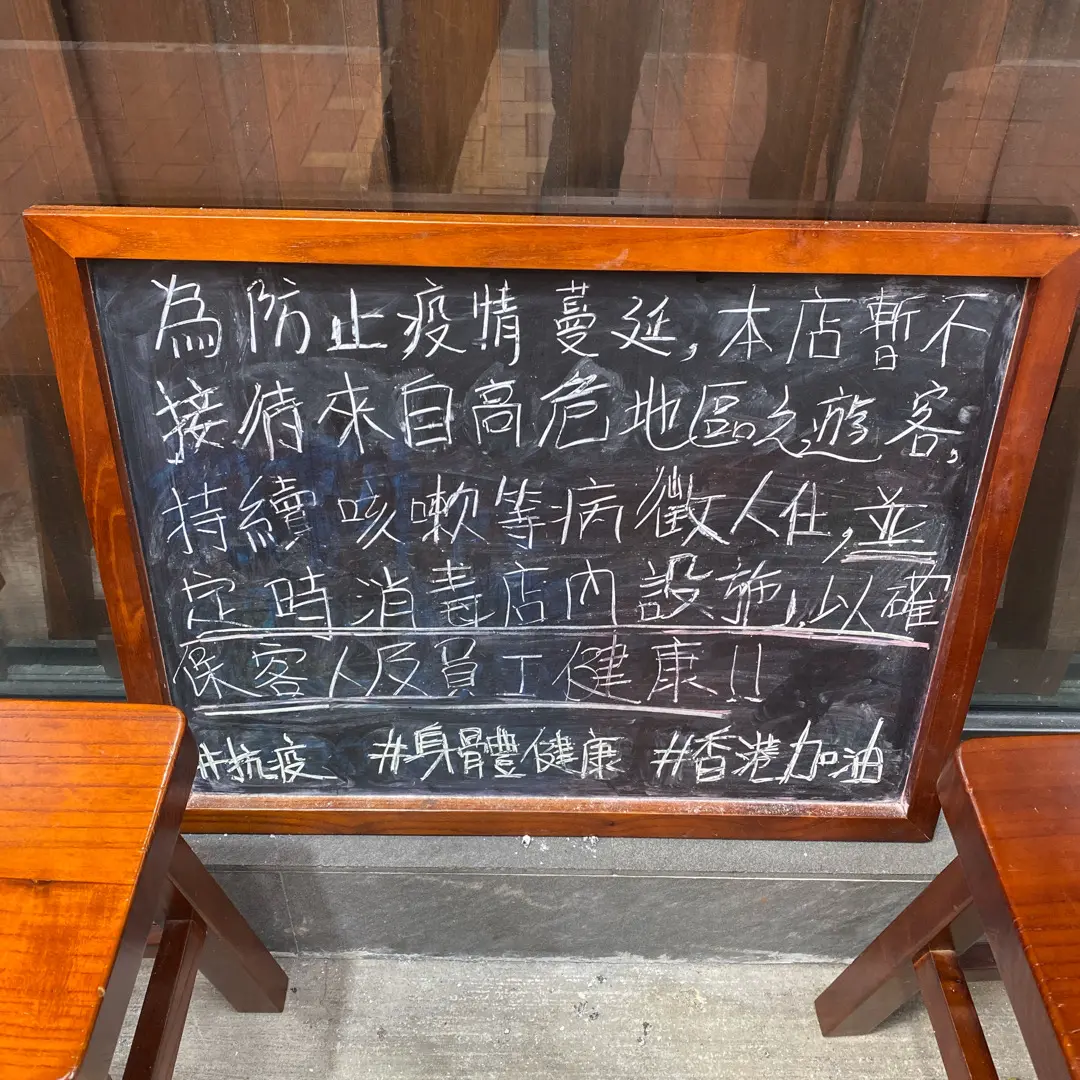 為防止疫情蔓延,本店暫不
接待來自高危地區之遊客,
持續咳嗽等病徵人仕,並
定時消毒店內設施,以確
保客人及員工健康!!
#抗疫 #身體健康 #香港加油